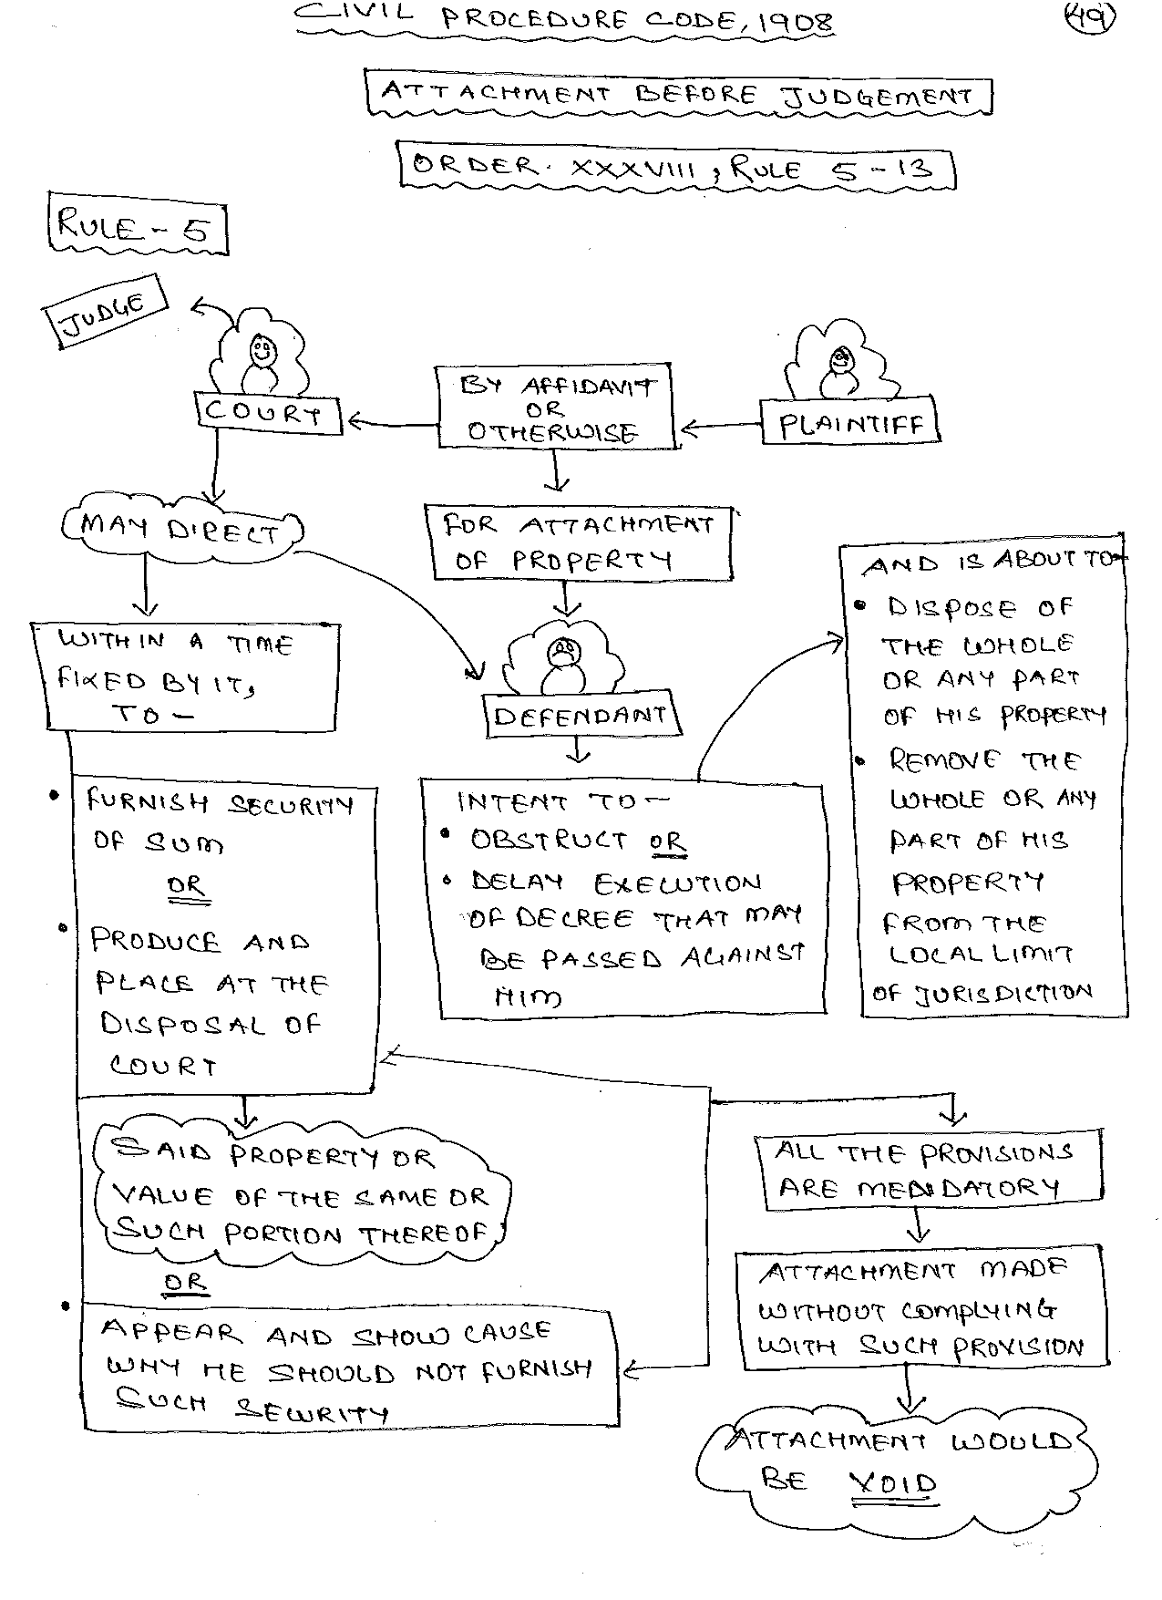 CIVIL PROCEDURE CODE, 1908
49
ATTACHMENT BEFORE JUDGEMENT
ORDER. XXXVIII, RULE 5-13
RULE-5
JUDGE
COURT
BY AFFIDAVIT
OR
OTHERWISE
PLAINTIFF
MAY DIRECT
FOR ATTACHMENT
OF PROPERTY
DEFENDANT
WITHIN A TIME
FIXED BY IT,
TO-
• FURNISH SECURITY
OF SUM
OR
• PRODUCE AND
PLACE AT THE
DISPOSAL OF
COURT
SAID PROPERTY OR
VALUE OF THE SAME OR
SUCH PORTION THEREOF
OR
• APPEAR AND SHOW CAUSE
WHY HE SHOULD NOT FURNISH
SUCH SECURITY
INTENT TO-
• OBSTRUCT OR
• DELAY EXECUTION
OF DECREE THAT MAY
BE PASSED AGAINST
HIM
AND IS ABOUT TO-
• DISPOSE OF
THE WHOLE
OR ANY PART
OF HIS PROPERTY
• REMOVE THE
WHOLE OR ANY
PART OF HIS
PROPERTY
FROM THE
LOCAL LIMIT
OF JURISDICTION
ALL THE PROVISIONS
ARE MENDATORY
ATTACHMENT MADE
WITHOUT COMPLYING
WITH SUCH PROVISION
ATTACHMENT WOULD
BE VOID